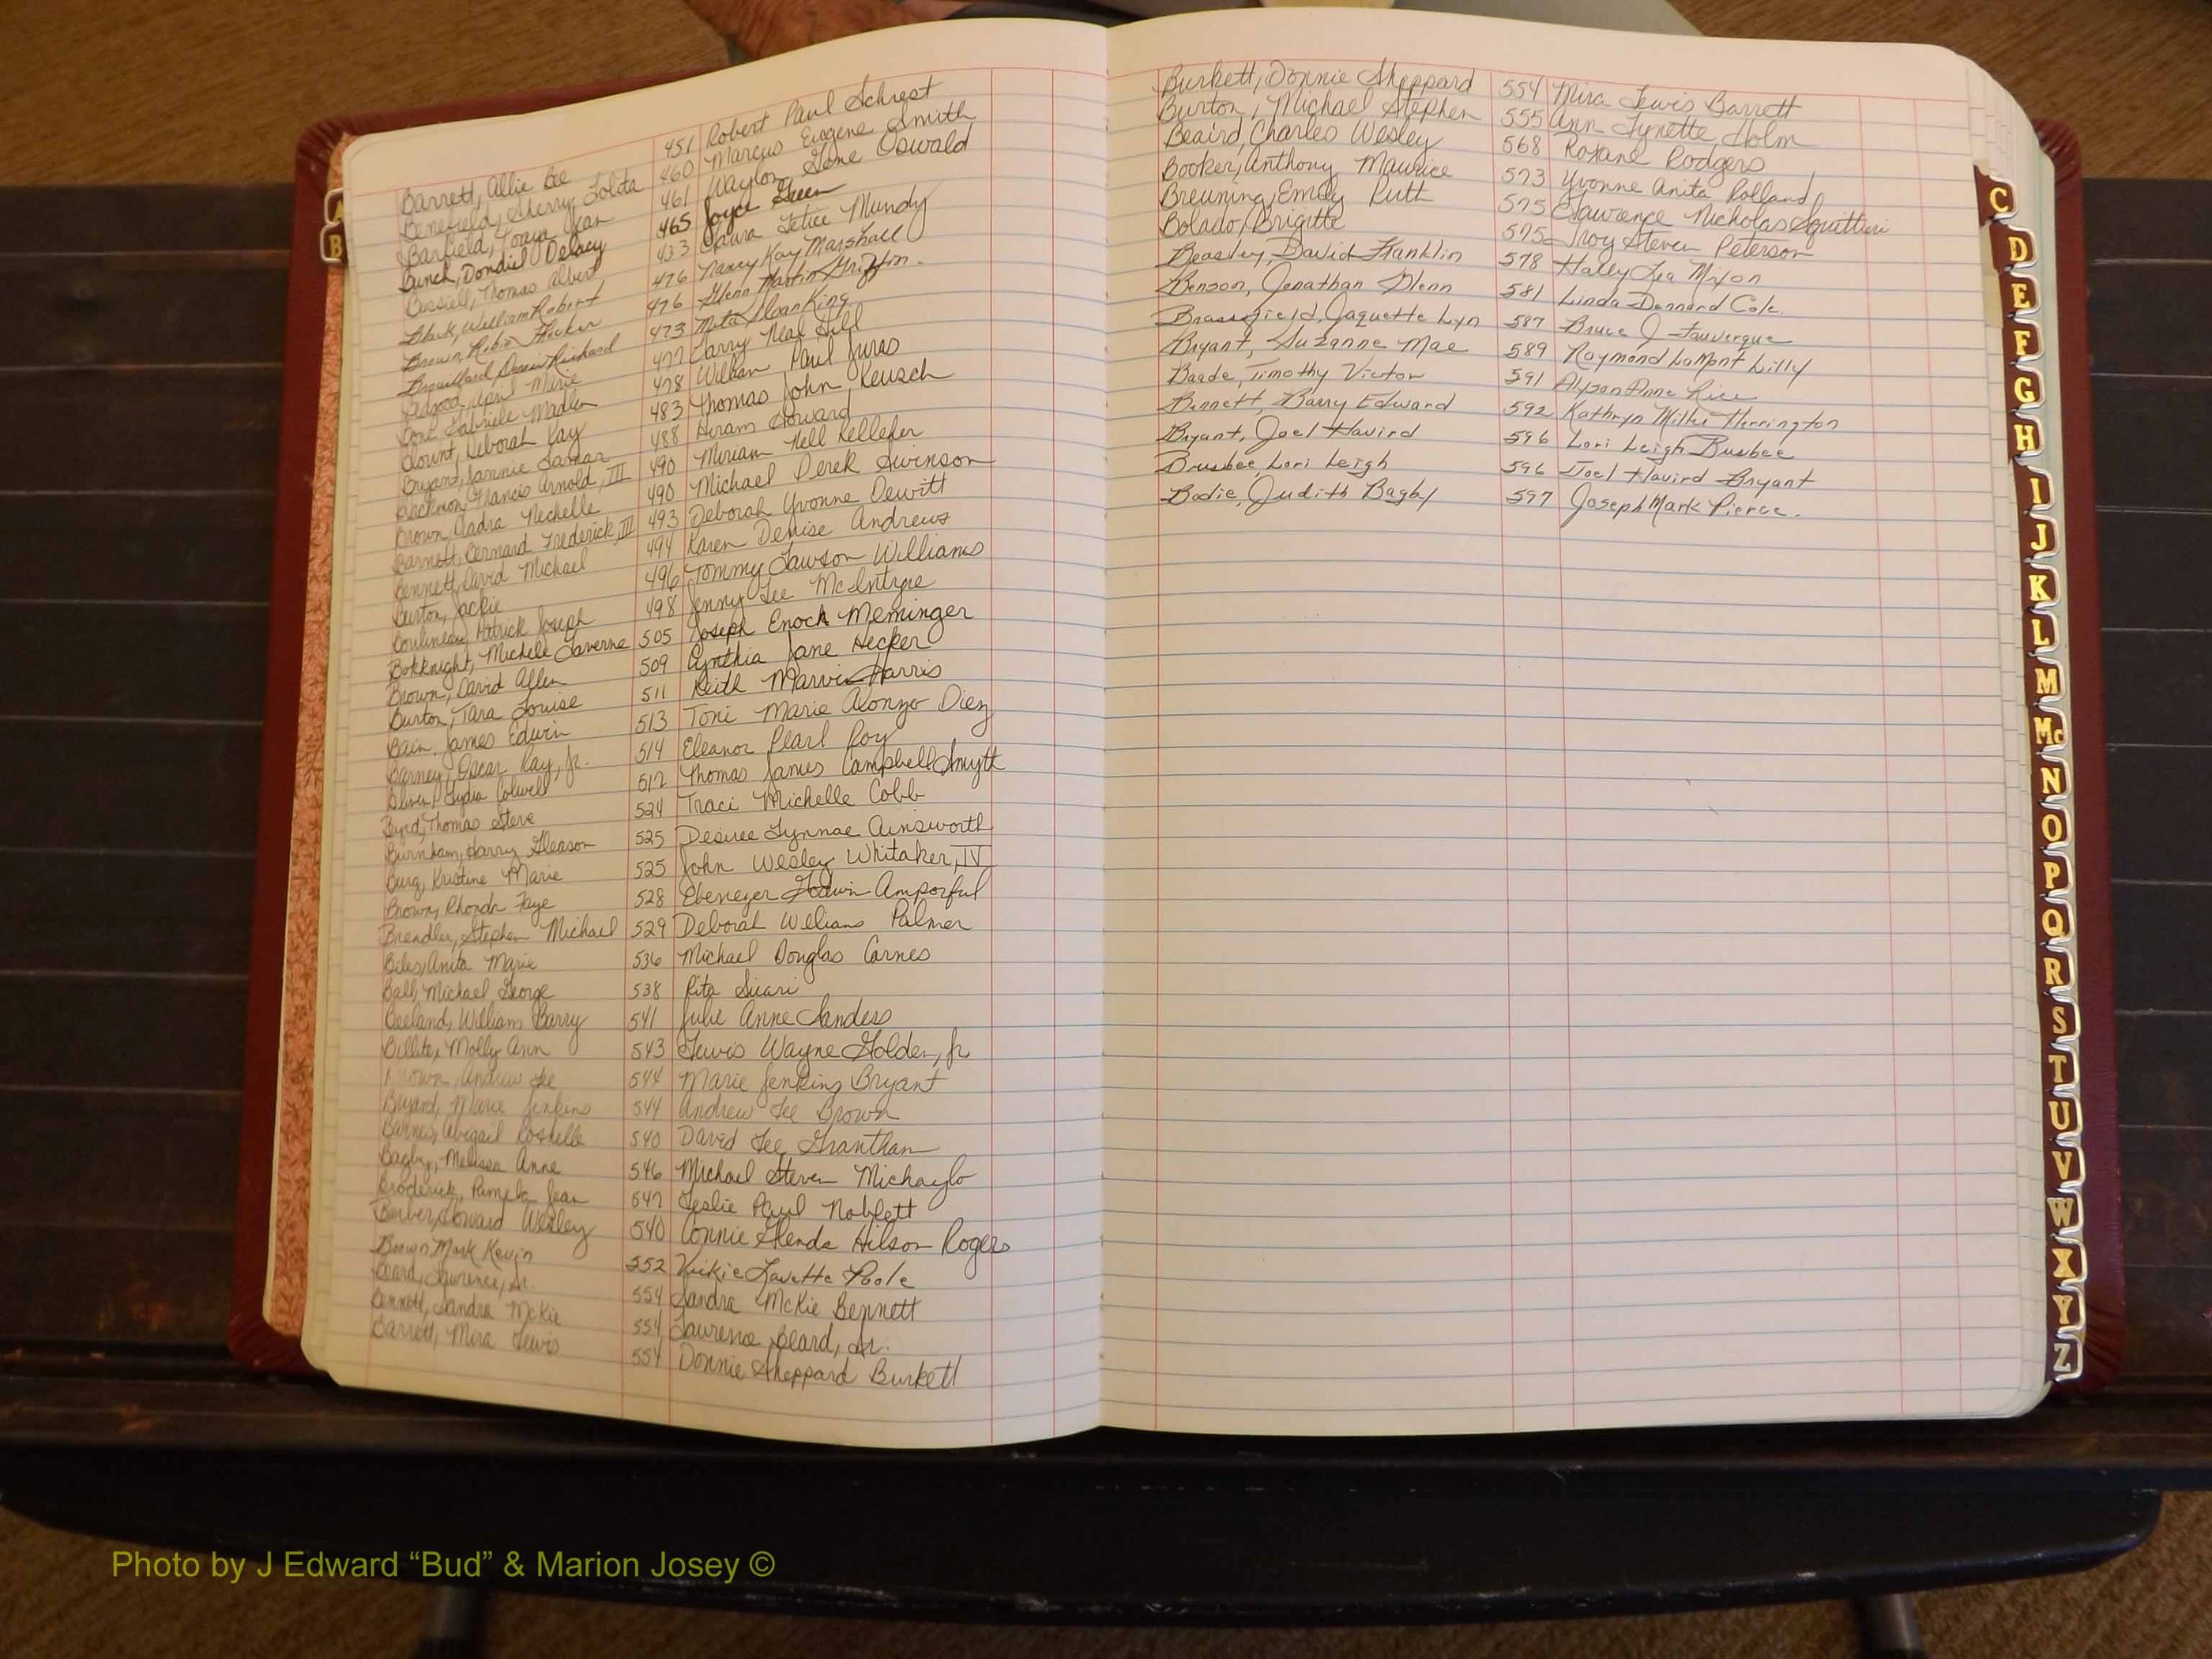 Barrett, Allie Bee 451 Robert Paul Schrest
Benefield, Sherry Lolita 460 Marcus Eugene Smith
Barfield, Tonya Jean 461 Waylon Gene Oswald
Bunch, Dondiel Delacy 465 Joyce Green
Thomas Albert 433 Laura Letice Mundy
Black, William Robert 476 Nancy Kay Marshall
Brown, Robin Hooker 476 Glenn Martin Griffin.
Brouillard, Richard 473 Meta Sloan King
April Marie 477 Larry Neal Hill
Gabriele Madlen 478 William Paul Juras
Blount, Deborah Kay 483 Thomas John Keusch
Bryant, Jannie Lamar 488 Hiram Howard
Francis Arnold, III 490 Miriam Nell Kellefer
Brown, Nechelle 490 Michael Derek Swinson
Barnett, Bernard Frederick, III 493 Deborah Yvonne Dewitt
Bennett, David Michael 494 Karen Denise Andrews
Burton, Jackie 496 Tommy Lawson Williams
Boulineau, Patrick Joseph 498 Jenny Lee McIntyre
Bokknight, Michele Laverne 505 Joseph Enoch Meminger
Brown, David Allen 509 Cynthia Jane Hecker
Burton, Tara Louise 511 Keith Marvin Harris
Bain, James Edwin 513 Toni Marie Alonzo Diez
Barney, Oscar Ray, Jr. 514 Eleanor Pearl Roy
Lydia Colwell 517 Thomas James Campbell Smyth
Byrd, Thomas Steve 524 Traci Michelle Cobb
Burnham, Harry Gleason 525 Desiree Lynnae Ainsworth
Burg, Kristine Marie 525 John Wesley Whitaker, IV
Brown, Rhonda Faye 528 Ebenezer Godwin Amporful
Brendler, Stephen Michael 529 Deborah Williams Palmer
Biles, Anita Marie 536 Michael Douglas Carnes
Ball, Michael George 538 Rita Sicari
Beeland, William Barry 541 Julie Anne Sanders
Billiter, Molly Ann 543 Lewis Wayne Golden, Jr
Brown, Andrew Lee 544 Marie Jenkins Bryant
Bryant, Marie Jenkins 544 Andrew Lee Brown
Barnes, Abigail Roshelle 540 David Lee Granthan
Bagby, Melissa Anne 546 Michael Steven Michaylo
Broderick, Pamela Jean 547 Leslie Paul Noblett
Barber, Howard Wesley 540 Connie Glenda Hilson Rogers
Brown Mark Kevin 552 Vickie Lavette Poole
Beard, Lawrence, Sr. 554 Sandra McKie Bennett
Bennett, Sandra McKie 554 Lawrence Beard, Sr.
Barrett, Mira Lewis 554 Donnie Sheppard Burkett
Burkett, Donnie Sheppard 554 Mira Lewis Barrett
Burton, Michael Stephen 555 Ann Lynette Holm
Beaird, Charles Wesley 568 Roxane Rodgers
Booker, Anthony Maurice 573 Yvonne Anita Rolland
Breuning, Emily Ruth 575 Lawrence Nicholas Squittieri
Bolado, Brigitte 575 Troy Steven Peterson
Beasley, David Franklin 578 Hally Lea Mixon
Benson, Jonathan Glenn 581 Linda Dennard Cole
Brassfield, Jaquette Lyn 587 Bruce J Fauvergue
Bryant, Suzanne Mae 589 Raymond LaMont Lilly
Baade, Timothy Victor 591 Alyson Anne Rice
Bennett, Barry Edward 592 Kathryn Miller Herrington
Bryant, Joel Havird 596 Lori Leigh Busbee
Brusbee, Lori Leigh 596 Joel Havird Bryant
Bodie, Judith Bagby 597 Joseph Mark Pierce.
A
B
C
D
E
F
G
H
I
J
K
L
M
Mc
N
O
P
Q
R
S
T
U
V
W
X
Y
Z
Photo by J Edward “Bud” & Marion Josey ©